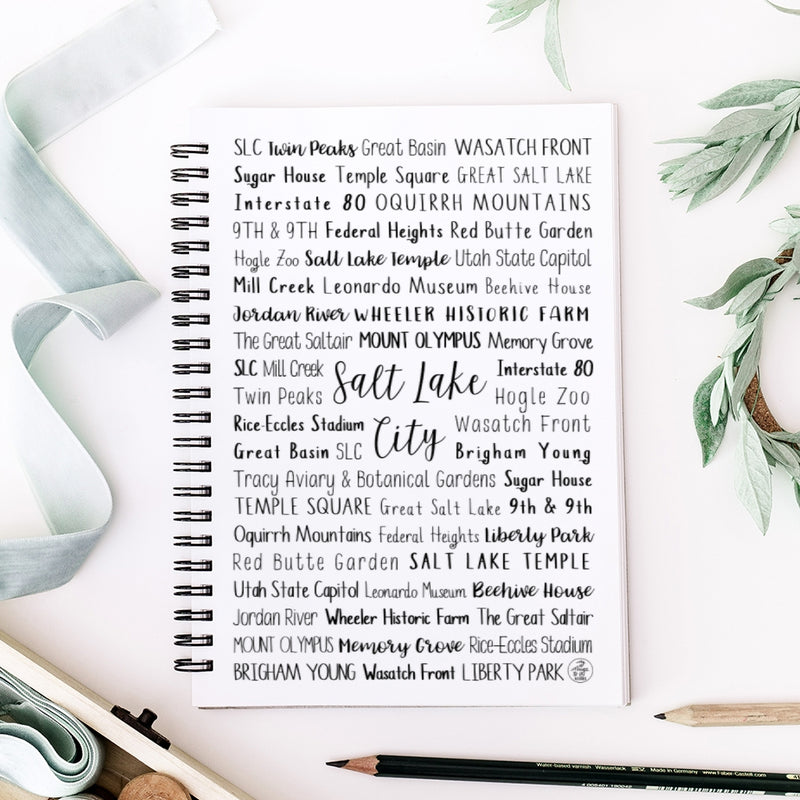 SLC Twin Peaks Great Basin WASATCH FRONT
Sugar House Temple Square GREAT SALT LAKE
Interstate 80 OQUIRRH MOUNTAINS
9TH & 9TH Federal Heights Red Butte Garden
Hogle Zoo Salt Lake Temple Utah State Capitol
Mill Creek Leonardo Museum Beehive House
Jordan River WHEELER HISTORIC FARM
The Great Saltair MOUNT OLYMPUS Memory Grove
SLC Mill Creek Interstate 80
Salt Lake
Twin Peaks Hogle Zoo
Rice-Eccles Stadium Wasatch Front
City
Great Basin SLC Brigham Young
Tracy Aviary & Botanical Gardens Sugar House
TEMPLE SQUARE Great Salt Lake 9th & 9th
Oquirrh Mountains Federal Heights Liberty Park
Red Butte Garden SALT LAKE TEMPLE
Utah State Capitol Leonardo Museum Beehive House
Jordan River Wheeler Historic Farm The Great Saltair
MOUNT OLYMPUS Memory Grove Rice-Eccles Stadium
BRIGHAM YOUNG Wasatch Front LIBERTY PARK
Water-based varnish Wasserlack Made in Germany www.Faber-Castell.com